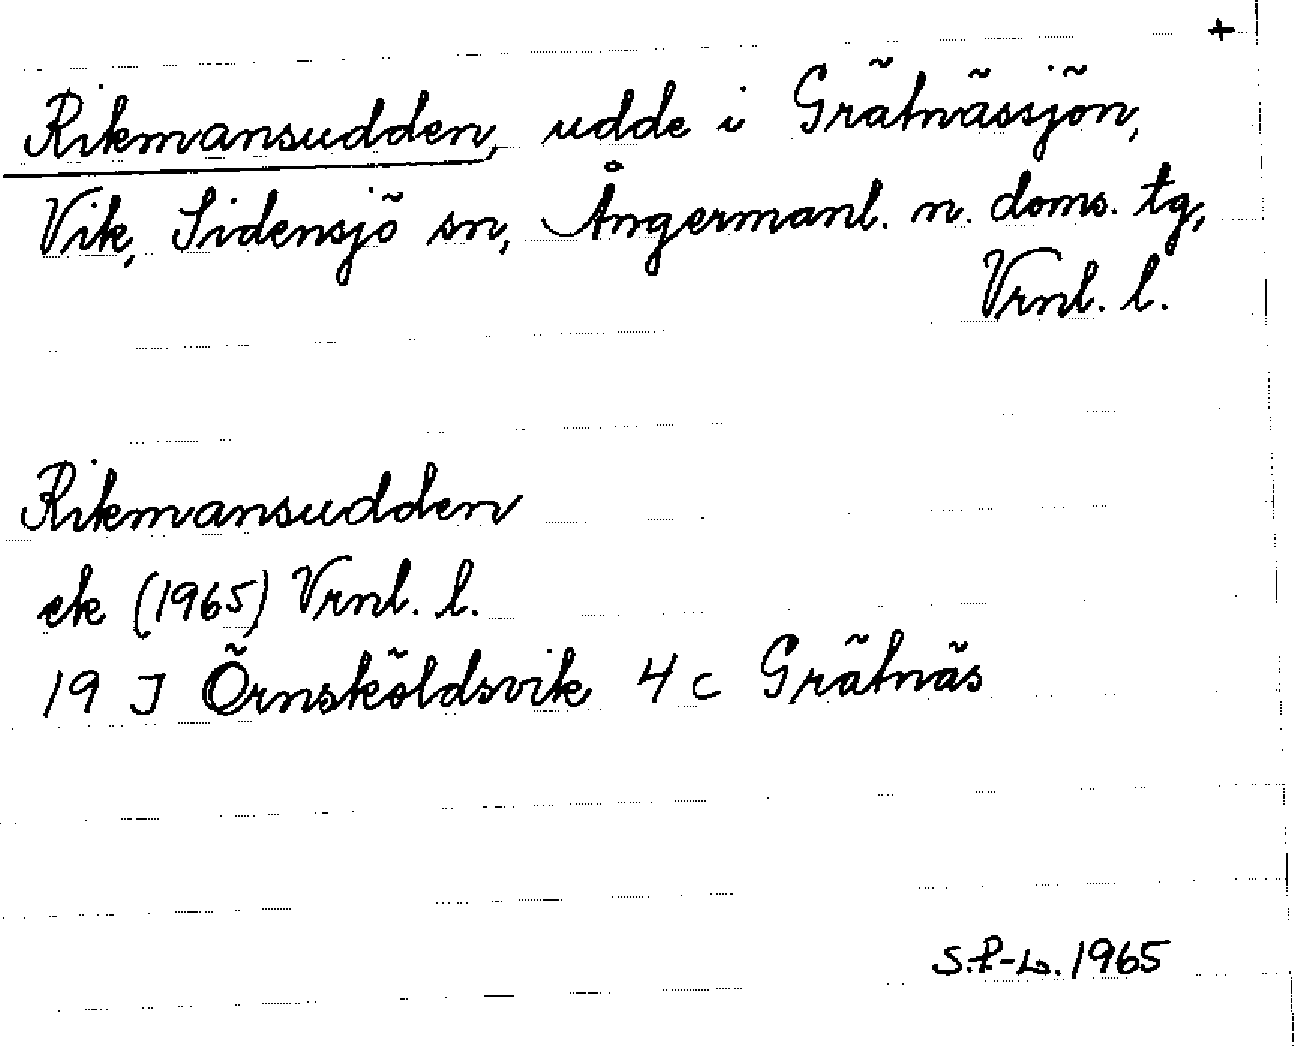 +
Rikmansudden, udde i Grätnässjön,
Vik, Sidensjö sn, Ångermanl. n. doms. tg,
Vrnl. l.
Rikmansudden
ek (1965) Vrnl. l.
19 J Örnsköldsvik 4 c Grätnäs
S.P-L. 1965